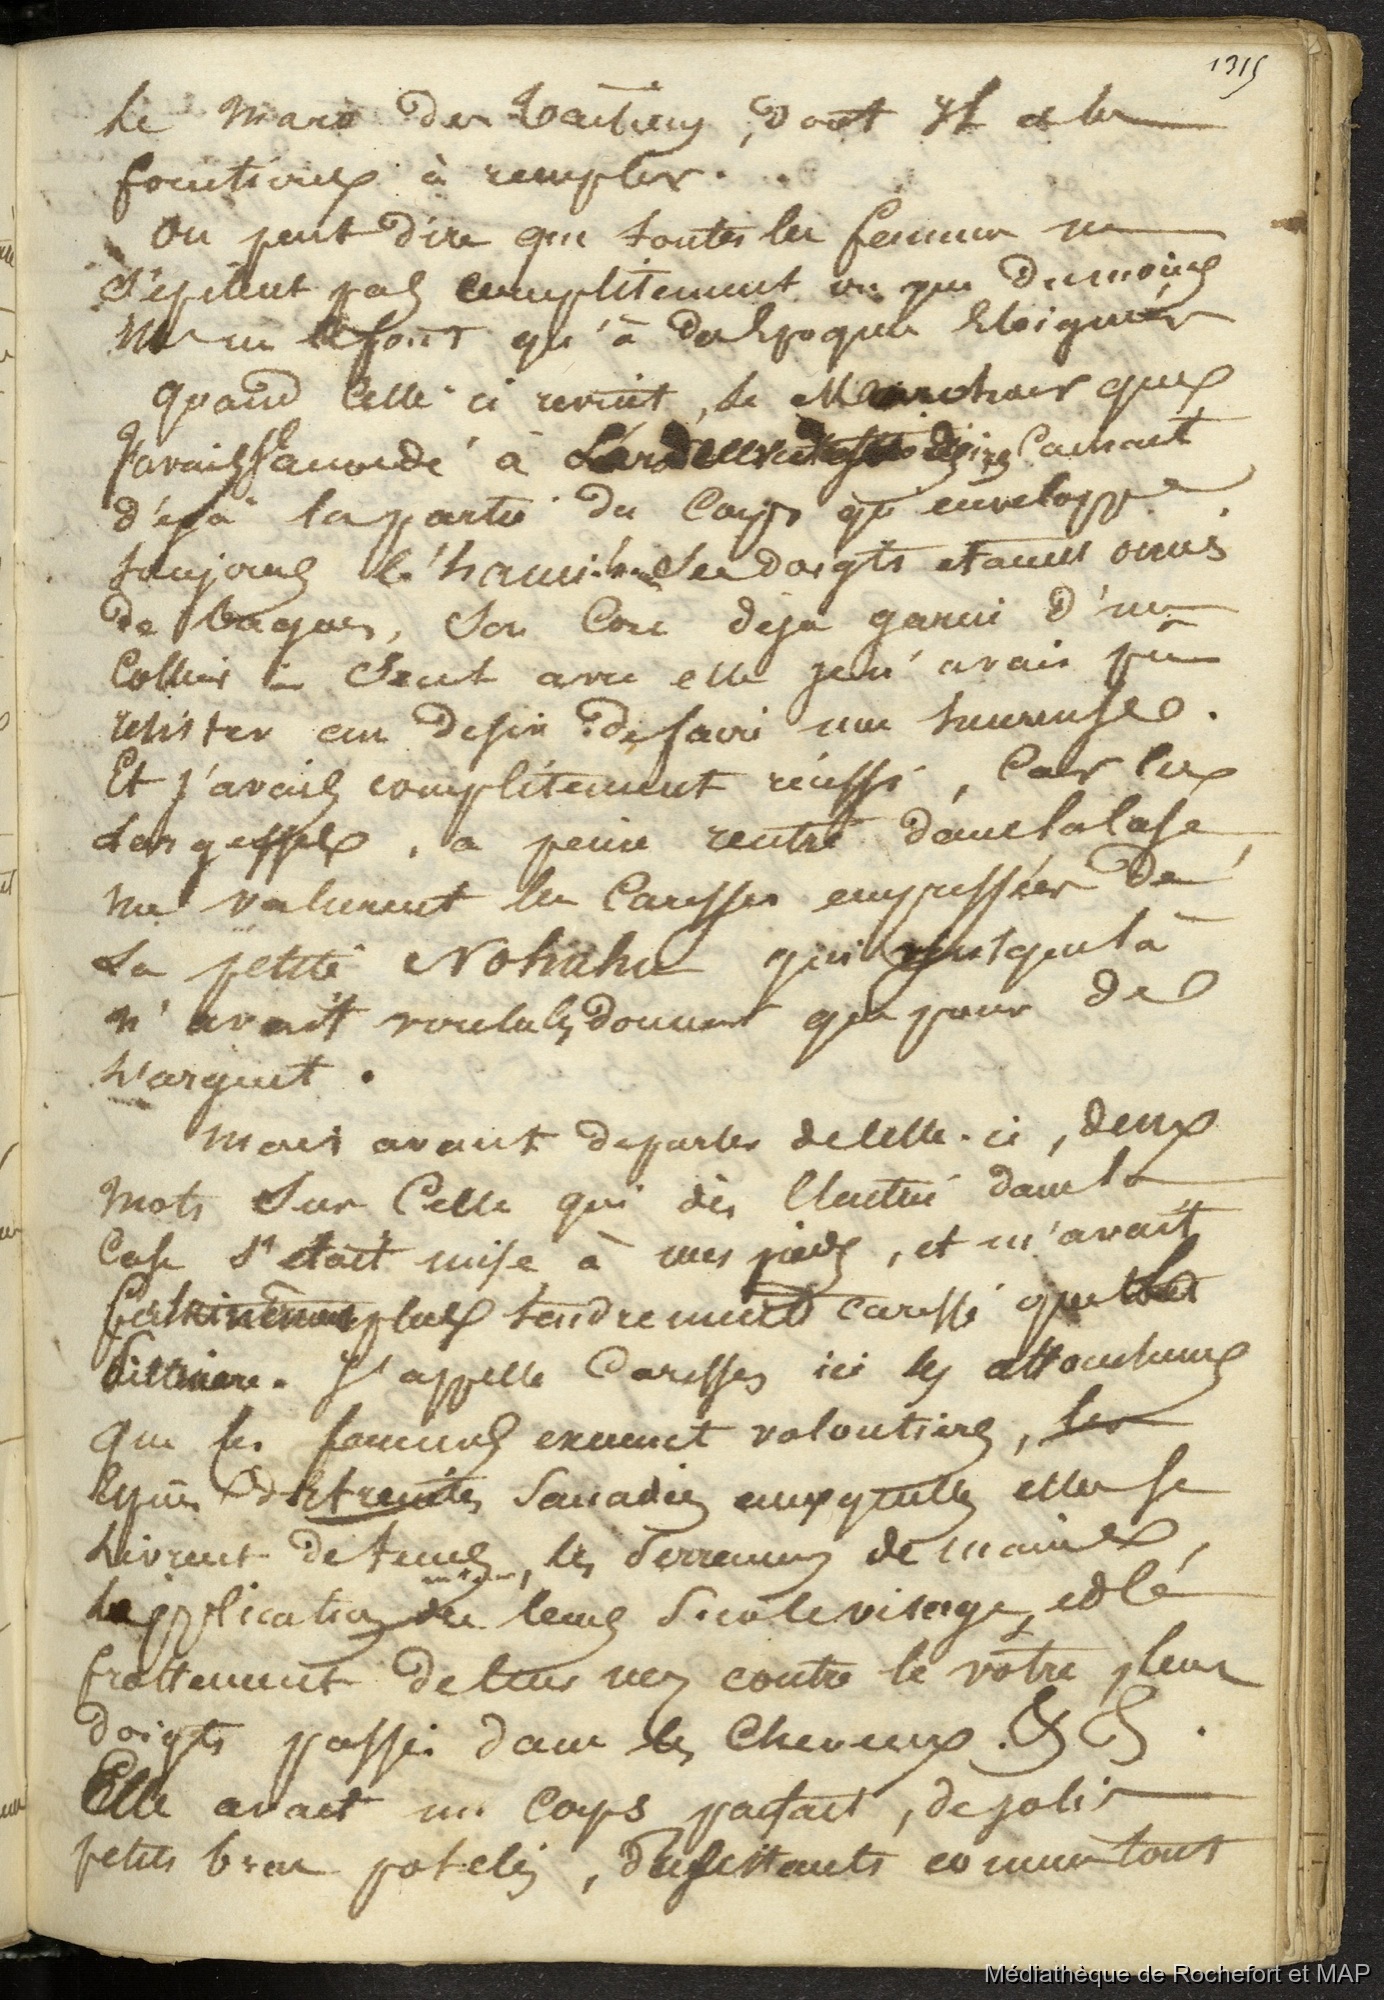 1315
Le Maro des Taïtiens, dont Il a les
fonctions à remplir.
On peut dire que toutes les femmes ne
s'épilent pas complitement ou que du moins
Ne le font qu'à des Epoques Eloignées
quand Celle-ci revint, le Mouchoir que
J'avais à Cachait
déjà la partie du Corps qu'enveloppe
toujours Ses doigts etaient ornés
de bagues, Son Cou déja garni d'un
Collier Seul avec elle je n'avais pu
resister au desir de faire une heureuse.
Et j'avais complitement réussi, Car les
Largesses, a peine rentré dans la Case,
me valurent les Caresses empressées de
La petite Nohahu qui jusque là
n'avait voulu donner que pour de
L'argent.
Mais avant de parler de Celle-ci, deux
Mots Sur Celle qui dès l'Entrée dans la
Case s'était mise à mes pieds, et m'avait
plus tendrement caressé que
J'appelle Caresses ici les attouchements
que les femmes exercent volontiers, les
auxquelles elles se
Livrent de terms, les Serremens de mains,
L'application de leurs Sur le visage, et le
frottement de leur nez contre le vôtre, leurs
doigts passés dans les Cheveux. & &.
Elle avait un Corps parfait, de jolis
petits bras potelés, comme tout
Médiathèque de Rochefort et MAP